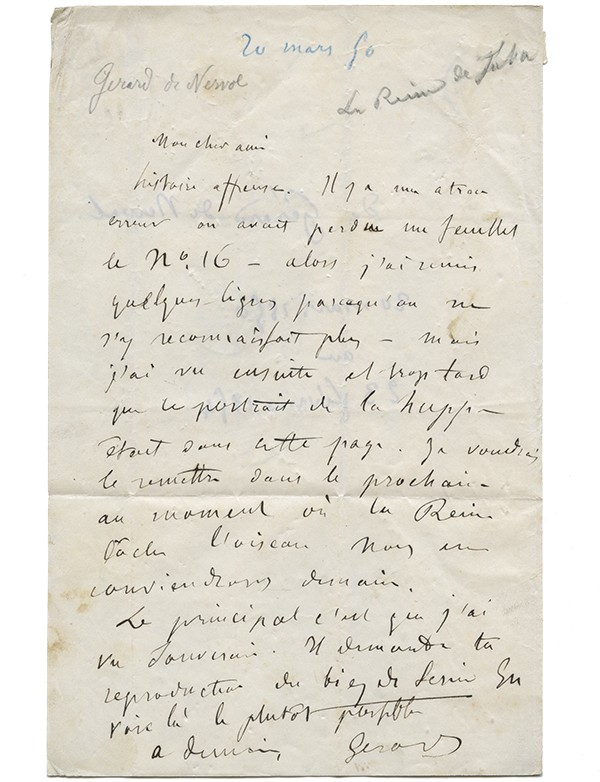 20 mars 50
Gerard de Nerval
La Reine de Saba
Mon cher ami
histoire affreuse. Il y a une atroce
erreur on avait perdu un feuillet
le No. 16 – alors j'ai remis
quelques lignes parcequ'on ne
s'y reconnaissait plus – mais
j'ai vu ensuite et trop tard
que le portrait de la huppe
était dans cette page. Je voudrais
le remettre dans le prochain
au moment où la Reine
l'oiseau Nous en
conviendrons demain.
Le principal c'est que j'ai
vu Souverain. Il demande ta
reproduction du de Serin
là le plutot possible
a demain,
Gerard